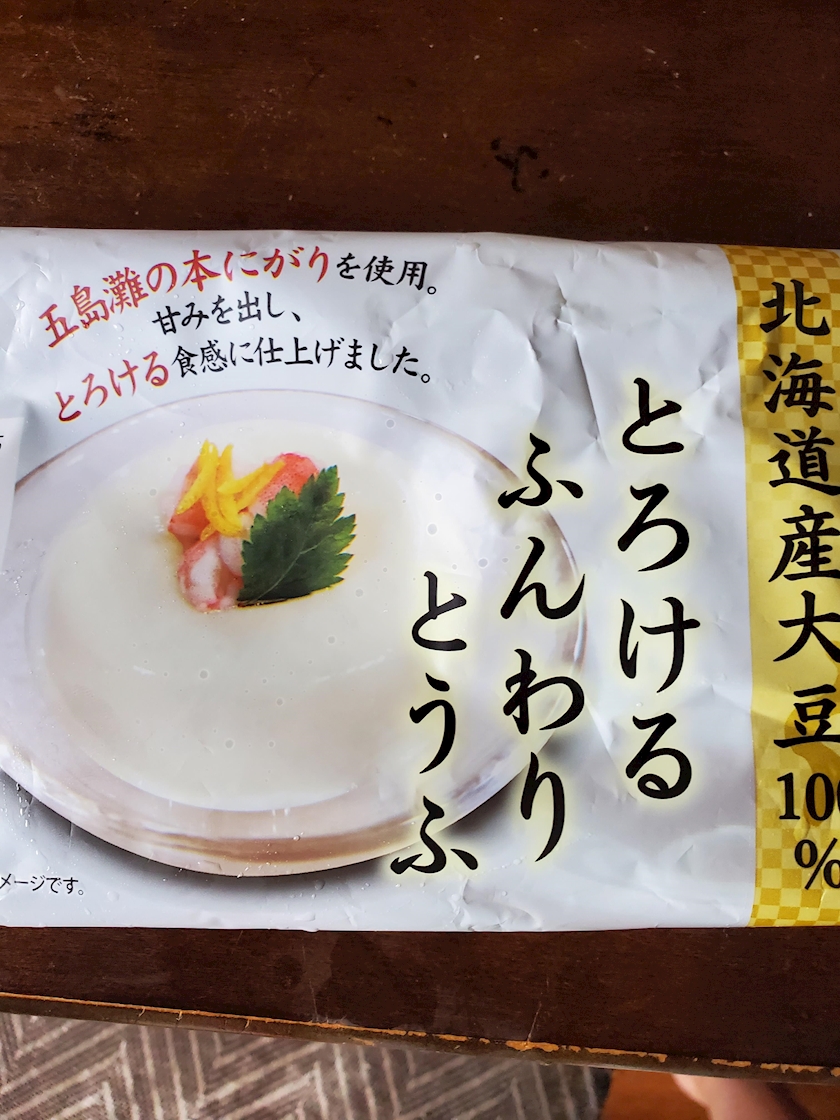 五島灘の本にがりを使用。
甘みを出し、
とろける食感に仕上げました。
とろける
ふんわり
とうふ
北海道産大豆100%
メージです。